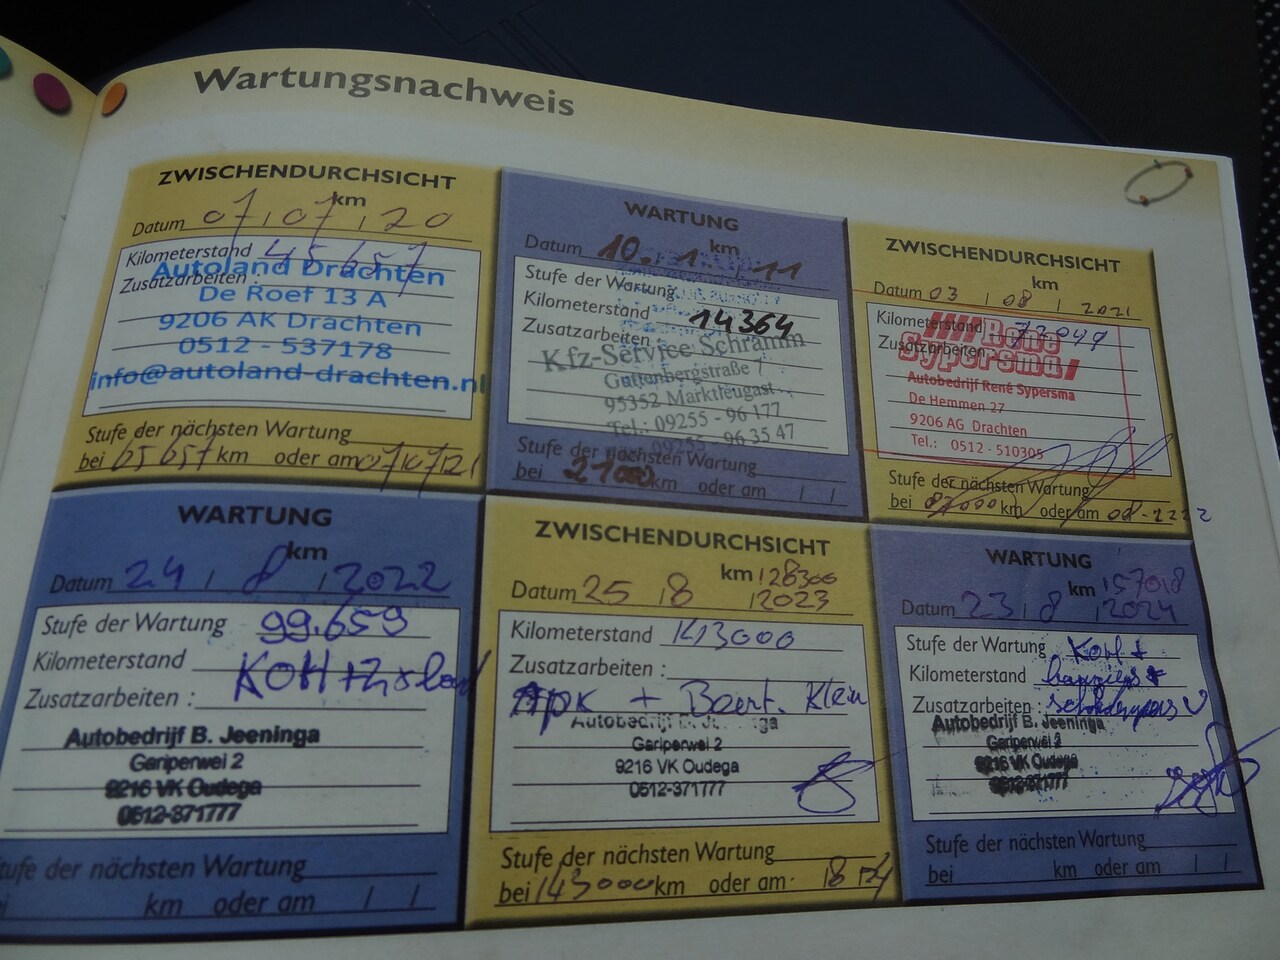 Wartungsnachweis
ZWISCHENDURCHSICHT
km
Datum 07 / 07 / 20
Kilometerstand 45657
Zusatzarbeiten :
Autoland Drachten
De Roef 13 A
9206 AK Drachten
0512 - 537178
info@autoland-drachten.nl
Stufe der nächsten Wartung
bei 65657 km oder am 07/07/21
WARTUNG
km
Datum 10. 1. 11
Stufe der Wartung
Kilometerstand 14364
Zusatzarbeiten
Kfz-Service Schramm
Guttenbergstraße 7
95352 Marktleugast
Tel.: 09255 - 96 177
09255 - 96 35 47
Stufe der nächsten Wartung
bei 21000 km oder am / /
ZWISCHENDURCHSICHT
km
Datum 03 / 08 / 2021
Kilometerstand
Zusatzarbeiten
René
Sypersma
Autobedrijf René Sypersma
De Hemmen 27
9206 AG Drachten
Tel.: 0512 - 510305
Stufe der nächsten Wartung
bei 87000 km oder am 08-2222
WARTUNG
km
Datum 24 / 8 / 2022
Stufe der Wartung 99.659
Kilometerstand
Zusatzarbeiten :
Autobedrijf B. Jeeninga
Gariperwei 2
9216 VK Oudega
0512-371777
Stufe der nächsten Wartung
km oder am / /
ZWISCHENDURCHSICHT
km 128300
Datum 25 / 8 / 2023
Kilometerstand
Zusatzarbeiten :
Apk + Beurt. Klein
Autobedrijf B. Jeeninga
Gariperwei 2
9216 VK Oudega
0512-371777
Stufe der nächsten Wartung
bei 143000 km oder am
WARTUNG
km 157018
Datum 23 / 8 / 2024
Stufe der Wartung
Kilometerstand
Zusatzarbeiten :
Autobedrijf B. Jeeninga
Gariperwei 2
9216 VK Oudega
0512-371777
Stufe der nächsten Wartung
bei km oder am / /